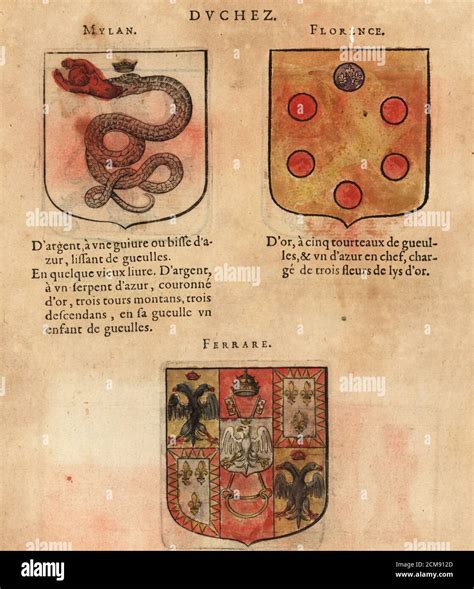 DVCHEZ.
MYLAN.
D'argent, à vne guiure ou biſſe d'a-
zur, liſſant de gueulles.
En quelque vieux liure. D'argent,
à vn ſerpent d'azur, couronné
d'or, trois tours montans, trois
deſcendans, en ſa gueulle vn
enfant de gueulles.
FLORENCE.
D'or, à cinq tourteaux de gueul-
les, & vn d'azur en chef, char-
gé de trois fleurs de lys d'or.
FERRARE.
alamy
alamy
alamy
alamy
Image ID: 2CM912D
www.alamy.com